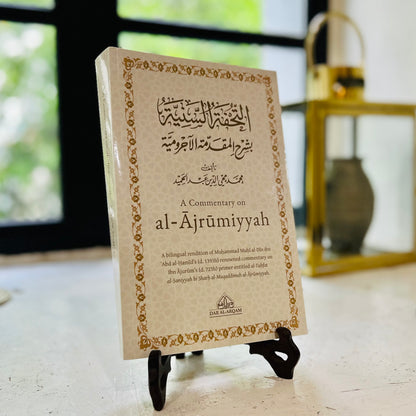 التحفة السنية
بشرح المقدمة الآجرومية
تأليف
محمد محيي الدين عبد الحميد
A Commentary on
al-Ājrūmiyyah
A bilingual rendition of Muḥammad Muḥī al-Dīn ibn
ʿAbd al-Ḥamīd's (d. 1393h) renowned commentary on
Ibn Ājurūm's (d. 723h) primer entitled al-Tuḥfat
al-Saniyyah bi Sharḥ al-Muqaddimah al-Ājrūmiyyah.
DAR AL-ARQAM